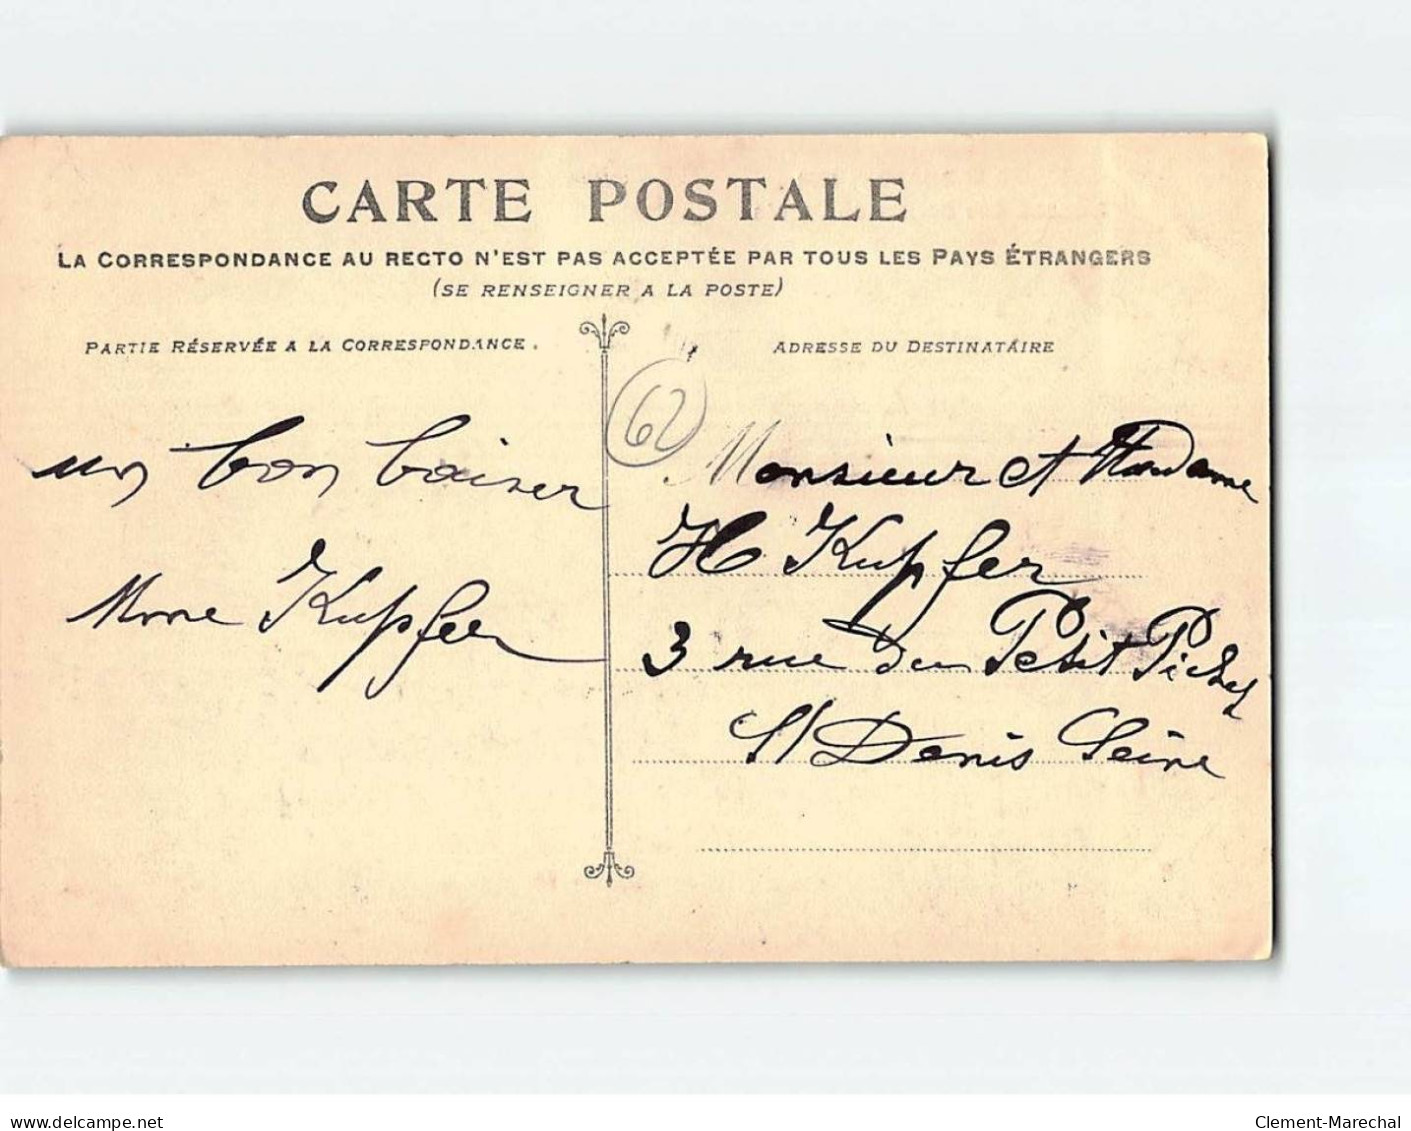 CARTE POSTALE
LA CORRESPONDANCE AU RECTO N'EST PAS ACCEPTÉE PAR TOUS LES PAYS ÉTRANGERS
(SE RENSEIGNER A LA POSTE)
PARTIE RÉSERVÉE A LA CORRESPONDANCE.
un bon baiser
Mme Kupfer
ADRESSE DU DESTINATAIRE
62
Monsieur et Madame
H Kupfer
3 rue du Petit
St Denis Seine
delcampe.net
Clement-Marechal